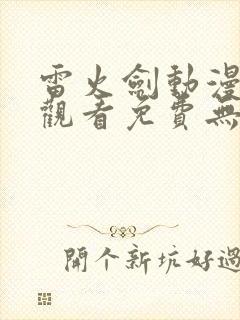 雷火劍動漫
觀看免費無
開个新坑好過